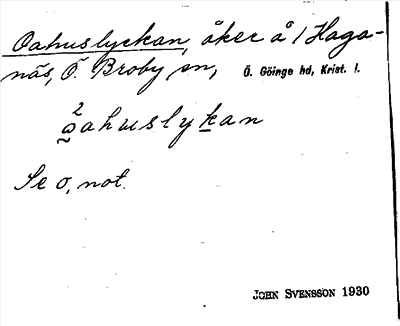 Oahuslyckan, åker å 1 Haga-
näs, Ö. Broby sn, Ö. Göinge hd, Krist. l.
2
oahuslykan
Se o, not.
JOHN SVENSSON 1930